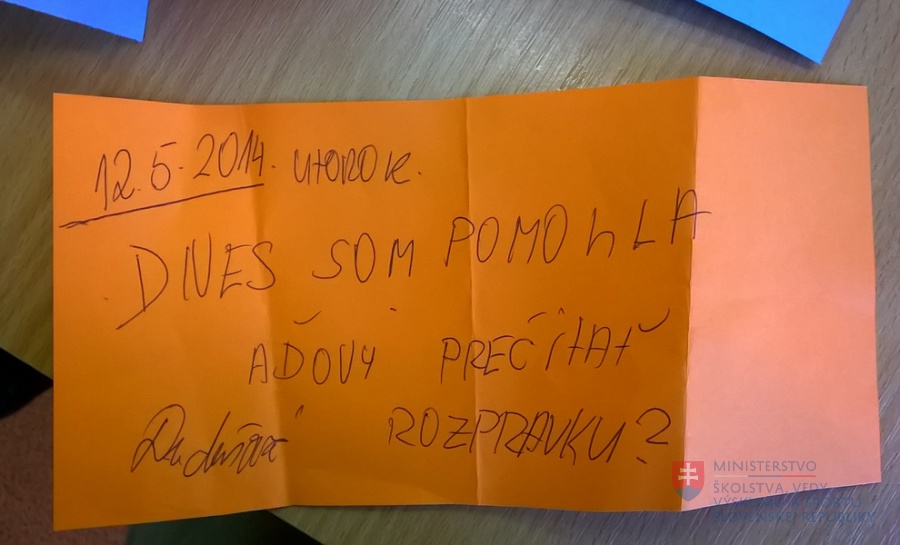 12.5.2014. UTOROK.
DNES SOM POMOhLA
AĎOVY PREČÍtAť
ROZPRAVKU?
MINISTERSTVO
ŠKOLSTVA, VEDY
VÝSKUMU
SLOVENSKEJ REPUBLIKY